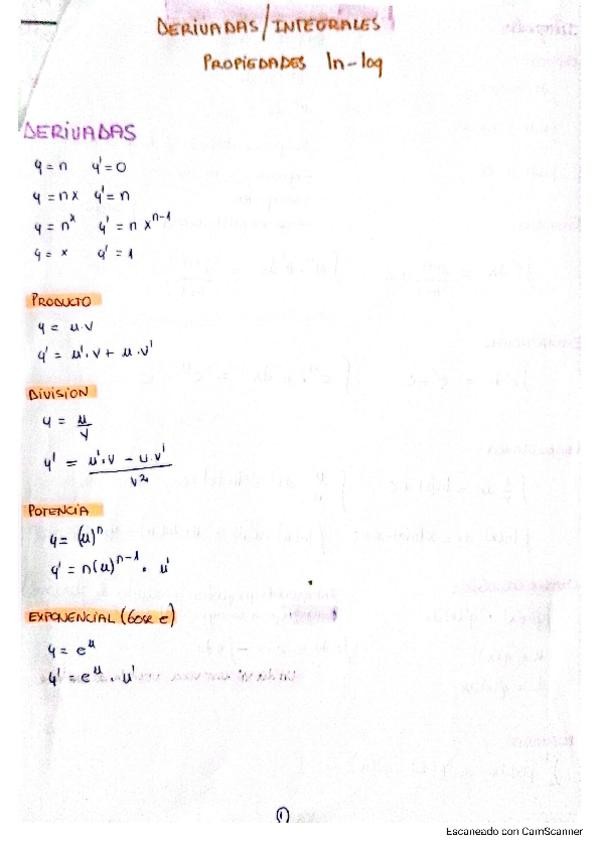 DERIVADAS/INTEGRALES
PROPIEDADES ln-log
DERIVADAS
y = n y' = 0
y = nx y' = n
y = nˣ y' = n xⁿ⁻¹
y = x y' = 1
PRODUCTO
y = u·v
y' = u'·v + u·v'
DIVISION
y = u/v
y' = (u'·v - u·v')/v²
POTENCIA
y = (u)ⁿ
y' = n(u)ⁿ⁻¹ · u'
EXPONENCIAL (base e)
y = eᵘ
y' = eᵘ · u'
1
Escaneado con CamScanner